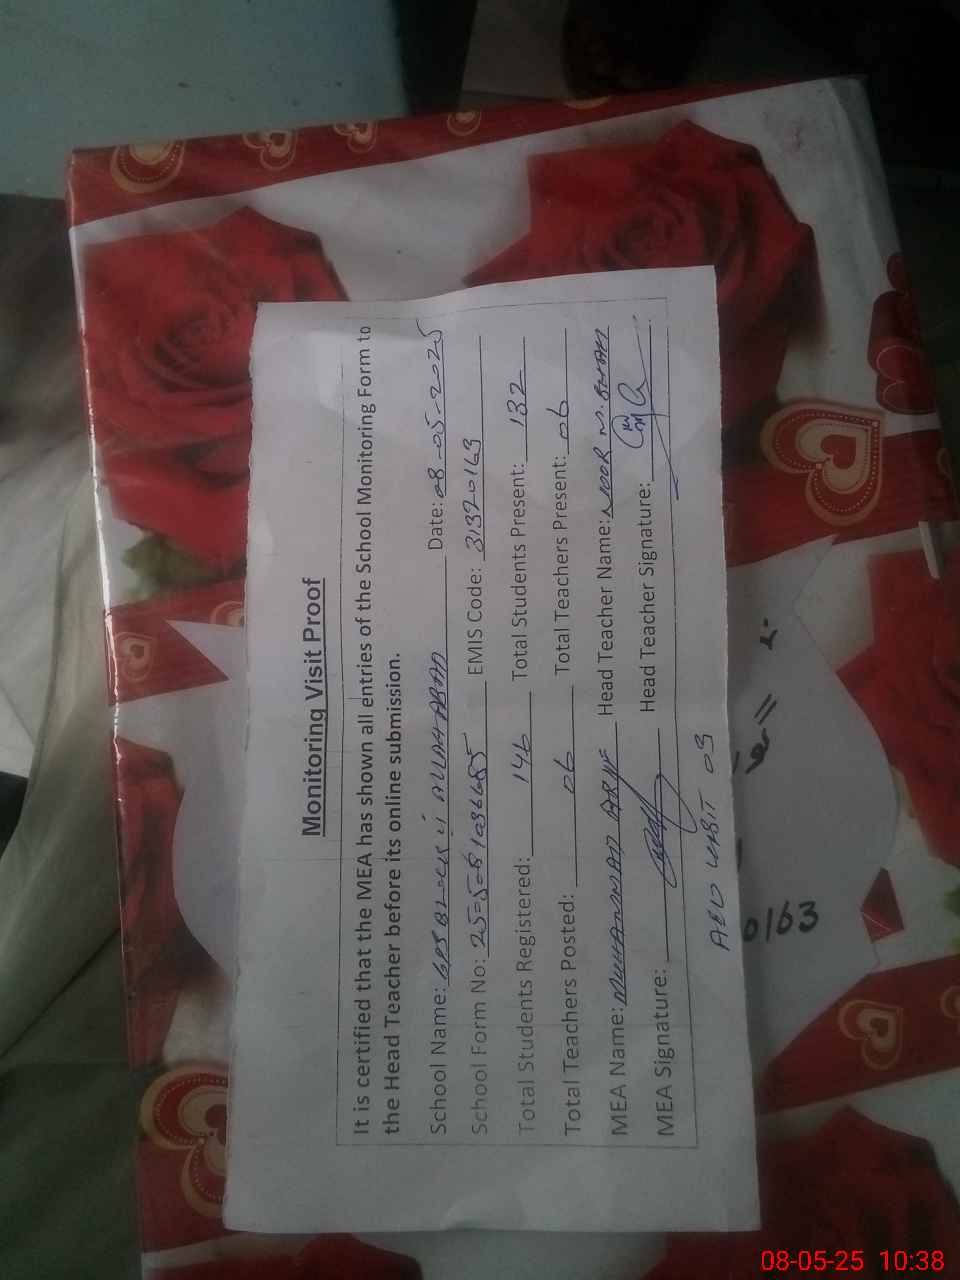 Monitoring Visit Proof
It is certified that the MEA has shown all entries of the School Monitoring Form to
the Head Teacher before its online submission.
School Name: GPS BLOCK ii ALLAHABAD Date: 08-05-2025
School Form No: 25=5081036685 EMIS Code: 31320163
Total Students Registered: 146 Total Students Present: 132
Total Teachers Posted: 06 Total Teachers Present: 06
MEA Name: MUHAMMAD ARIF Head Teacher Name: NOOR M.
MEA Signature: Head Teacher Signature:
03
0163
08-05-25 10:38